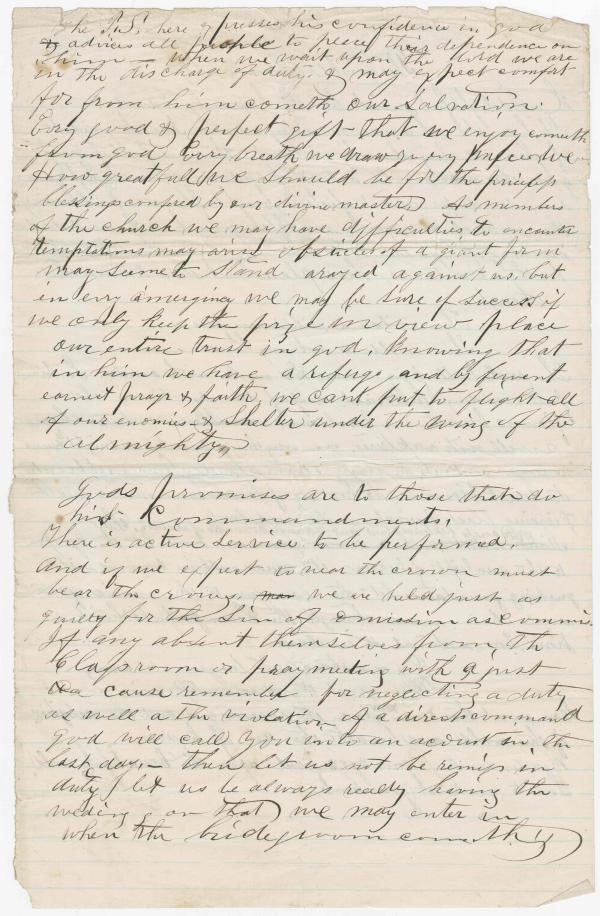 The P.S. here expresses his confidence in god
& advices all people to place their dependence on
him — when we wait upon the lord we are
in the discharge of duty & may expect comfort
for from him cometh our Salvation.
Evry good & perfect gift that we enjoy cometh
from god Evry breath we draw evry
How greatfull we should be for the priceless
blessings confered by our divine master. As members
of the church we may have difficulties to encounter
temptations may arise obsticles of a giant form
may seeme to stand arayed against us. but
in evry emergincy we may be sure of success if
we only keep the prize in view place
our entire trust in god. Knowing that
in him we have a refuge and by fervent
earnest prayr & faith, we can put to flight all
of our enemies & Shelter under the wing of the
almighty,,
Gods promises are to those that do
his Commandments.
There is active service to be performed.
And if we expect to wear the crown must
bear the cross. we are held just as
guiery for the Sin of omission as commis.
If any absent themselves from th
Class room or pray meeting with a just
a cause remember for neglecting a duty
as well a the violation of a direct command
God will call you into an acount in the
last day. — then let us not be remiss in
duty / let us be always ready having the
weding on that we may enter in
when the bridegroom cometh